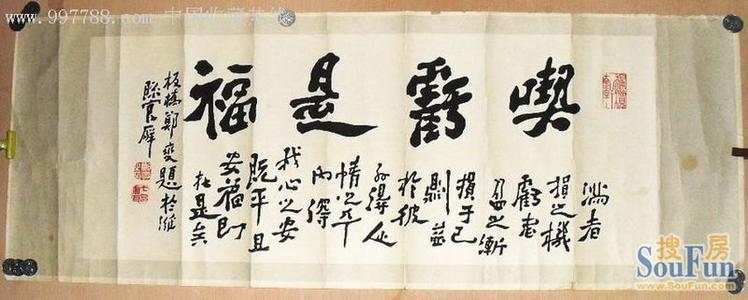 www.997788.com 中国收藏热线
喫虧是福
滿者
損之機
虧者
盈之漸
損于己
則益
於彼
外得人
情之平
內得
我心之安
既平且
安福即
在是矣
板橋鄭燮題於濰
縣官廨
搜房
SouFun